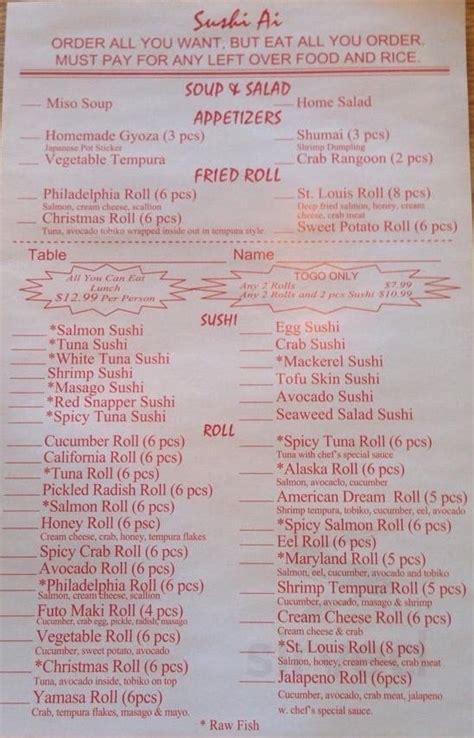 Sushi Ai
ORDER ALL YOU WANT, BUT EAT ALL YOU ORDER.
MUST PAY FOR ANY LEFT OVER FOOD AND RICE.
SOUP & SALAD
Miso Soup
Home Salad
APPETIZERS
Homemade Gyoza (3 pcs)
Japanese Pot Sticker
Vegetable Tempura
Shumai (3 pcs)
Shrimp Dumpling
Crab Rangoon (2 pcs)
FRIED ROLL
Philadelphia Roll (6 pcs)
Salmon, cream cheese, scallion
Christmas Roll (6 pcs)
Tuna, avocado tobiko wrapped inside out in tempura style
St. Louis Roll (8 pcs)
Deep fried salmon, honey, cream
cheese, crab meat
Sweet Potato Roll (6 pcs)
Table
Name
All You Can Eat
Lunch
$12.99 Per Person
TOGO ONLY
Any 2 Rolls $7.99
Any 2 Rolls and 2 pcs Sushi $10.99
SUSHI
*Salmon Sushi
*Tuna Sushi
*White Tuna Sushi
Shrimp Sushi
*Masago Sushi
*Red Snapper Sushi
*Spicy Tuna Sushi
Egg Sushi
Crab Sushi
*Mackerel Sushi
Tofu Skin Sushi
Avocado Sushi
Seaweed Salad Sushi
ROLL
Cucumber Roll (6 pcs)
California Roll (6 pcs)
*Tuna Roll (6 pcs)
Pickled Radish Roll (6 pcs)
*Salmon Roll (6 pcs)
Honey Roll (6 psc)
Cream cheese, crab, honey, tempura flakes
Spicy Crab Roll (6 pcs)
Avocado Roll (6 pcs)
*Philadelphia Roll (6 pcs)
Salmon, cream cheese, scallion
Futo Maki Roll (4 pcs)
Cucumber, crab egg, pickle, radish, masago
Vegetable Roll (6 pcs)
Cucumber, sweet potato, avocado
*Christmas Roll (6 pcs)
Tuna, avocado inside, tobiko on top
Yamasa Roll (6pcs)
Crab, tempura flakes, masago & mayo.
*Spicy Tuna Roll (6 pcs)
Tuna with chef's special sauce
*Alaska Roll (6 pcs)
Salmon, avocaclo, cucumber
American Dream Roll (5 pcs)
Shrimp tempura, tobiko, cucumber, eel, avocado
*Spicy Salmon Roll (6 pcs)
Eel Roll (6 pcs)
*Maryland Roll (5 pcs)
Salmon, eel, cucumber, avocado and tobiko
Shrimp Tempura Roll (5 pcs)
Cucumber, avocado, masago & shrimp
Cream Cheese Roll (6 pcs)
Cream cheese & crab
*St. Louis Roll (8 pcs)
Salmon, honey, cream cheese, crab meat
Jalapeno Roll (6pcs)
Cucumber, avocado, crab meat, jalapeno
w. chef's special sauce.
* Raw Fish